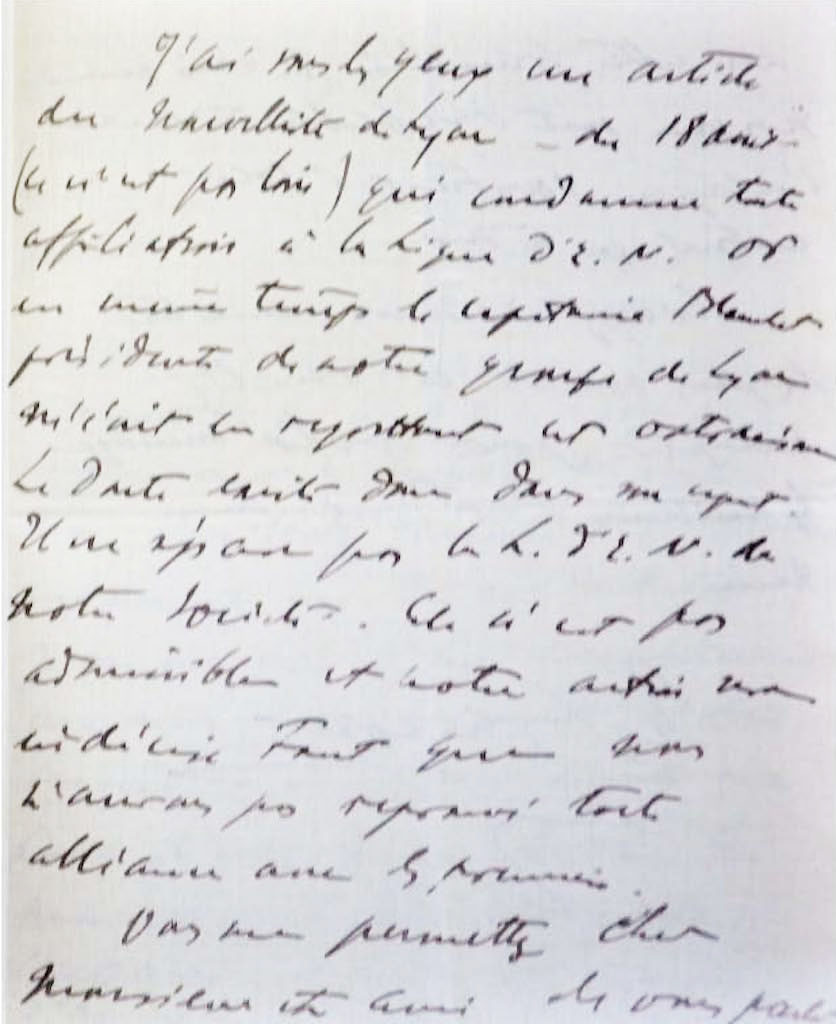 J'ai sous les yeux un article
du Nouvelliste de Lyon - du 18 août
(ce n'est pas loin) qui condamne toute
affiliation à la Ligue d'E. N. Or
en même temps le capitaine Blanchet
président de notre groupe de Lyon
m'écrit en
Le doute existe donc dans
Une par la L. d'E. N. de
notre Société. Cela n'est pas
admissible et notre action sera
indécise tant que nous
n'aurons pas repoussé toute
alliance avec les premiers.
Vous me permettez cher
Monsieur et ami de vous parler